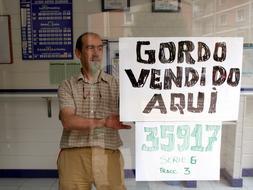 GORDO
VENDIDO
AQUÍ
35917
SERIE 6
FRACC. 3